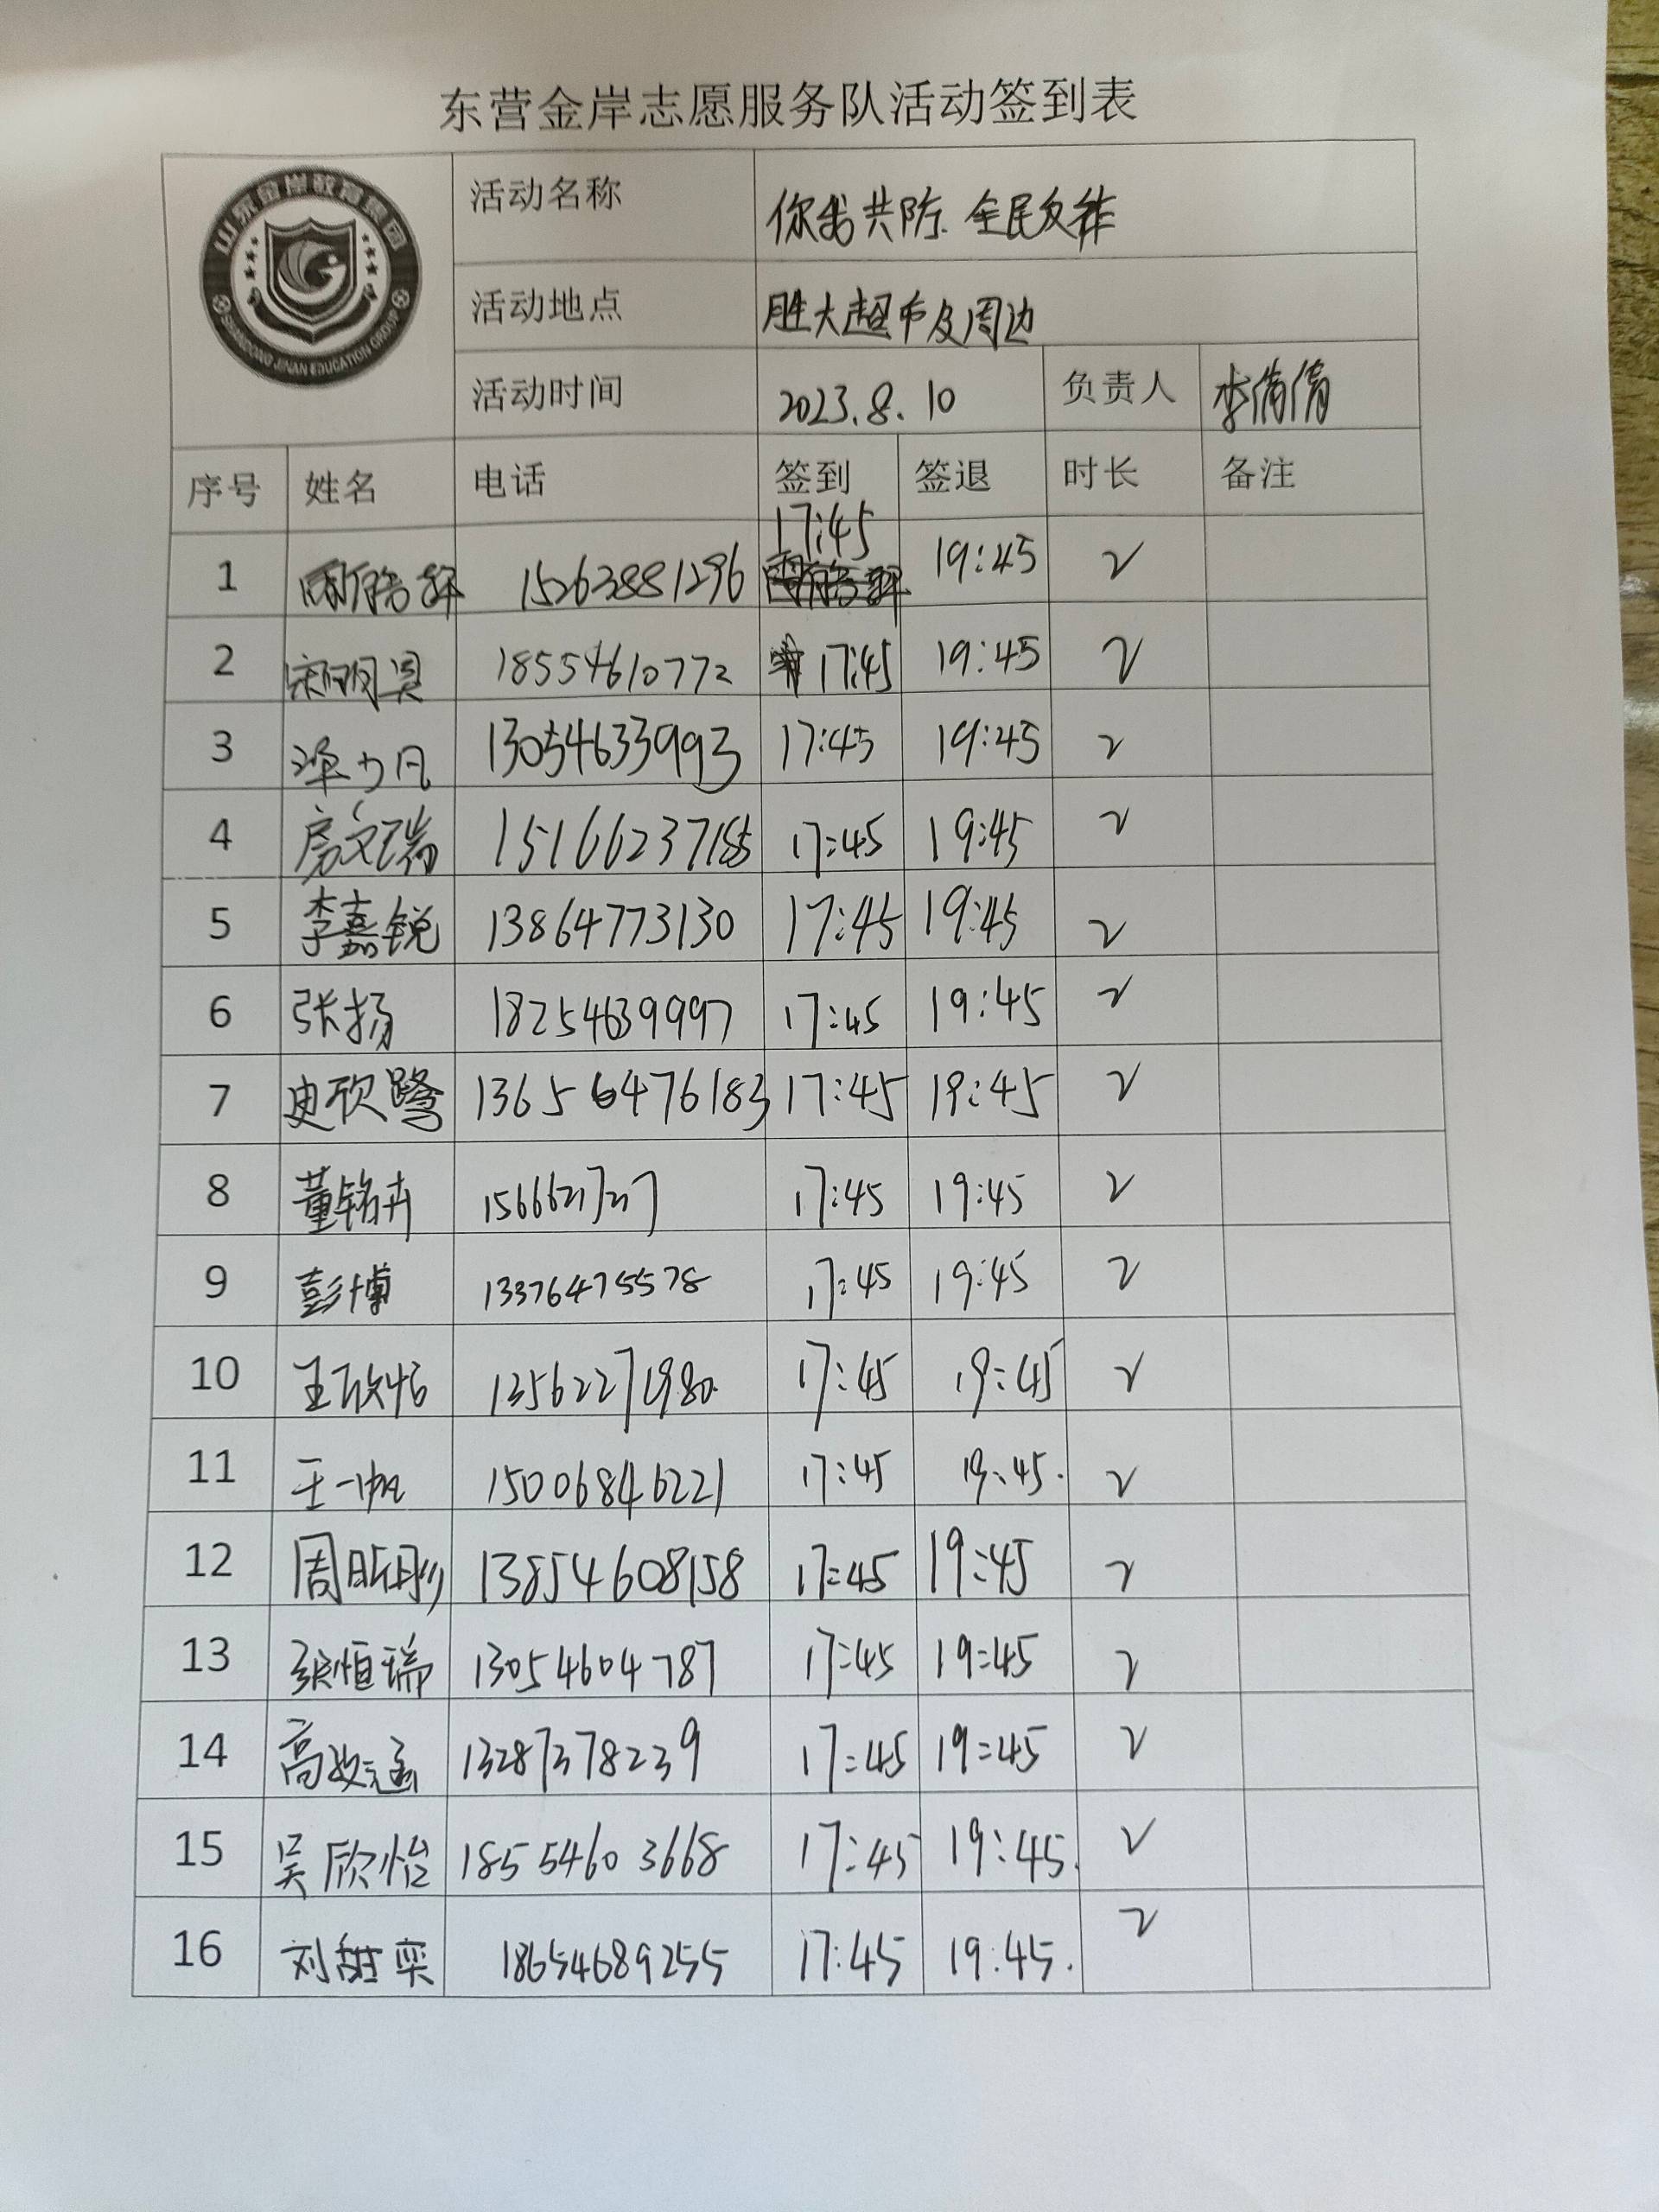 东营金岸志愿服务队活动签到表
山东金岸教育集团
SHANDONG JINAN EDUCATION GROUP
活动名称 你我共防、全民反诈
活动地点 胜大超市及周边
活动时间 2023.8.10 负责人 李倩倩
序号 姓名 电话 签到 签退 时长 备注
1 15263881296 17:45 19:45 2
2 18554610772 17:45 19:45 2
3 13054633993 17:45 19:45 2
4 房文瑞 15166237185 17:45 19:45 2
5 李嘉锐 13864773130 17:45 19:45 2
6 张扬 18254639997 17:45 19:45 2
7 13656476183 17:45 19:45 2
8 董铭卉 17:45 19:45 2
9 彭博 13376475578 17:45 19:45 2
10 王欣怡 13562271980 17:45 19:45 2
11 王一帆 15006846221 17:45 19:45. 2
12 周昕彤 13854608158 17:45 19:45 2
13 张恒瑞 13054604787 17:45 19:45 2
14 13287378239 17:45 19:45 2
15 吴欣怡 18554603668 17:45 19:45. 2
16 刘甜奕 18654689255 17:45 19:45. 2